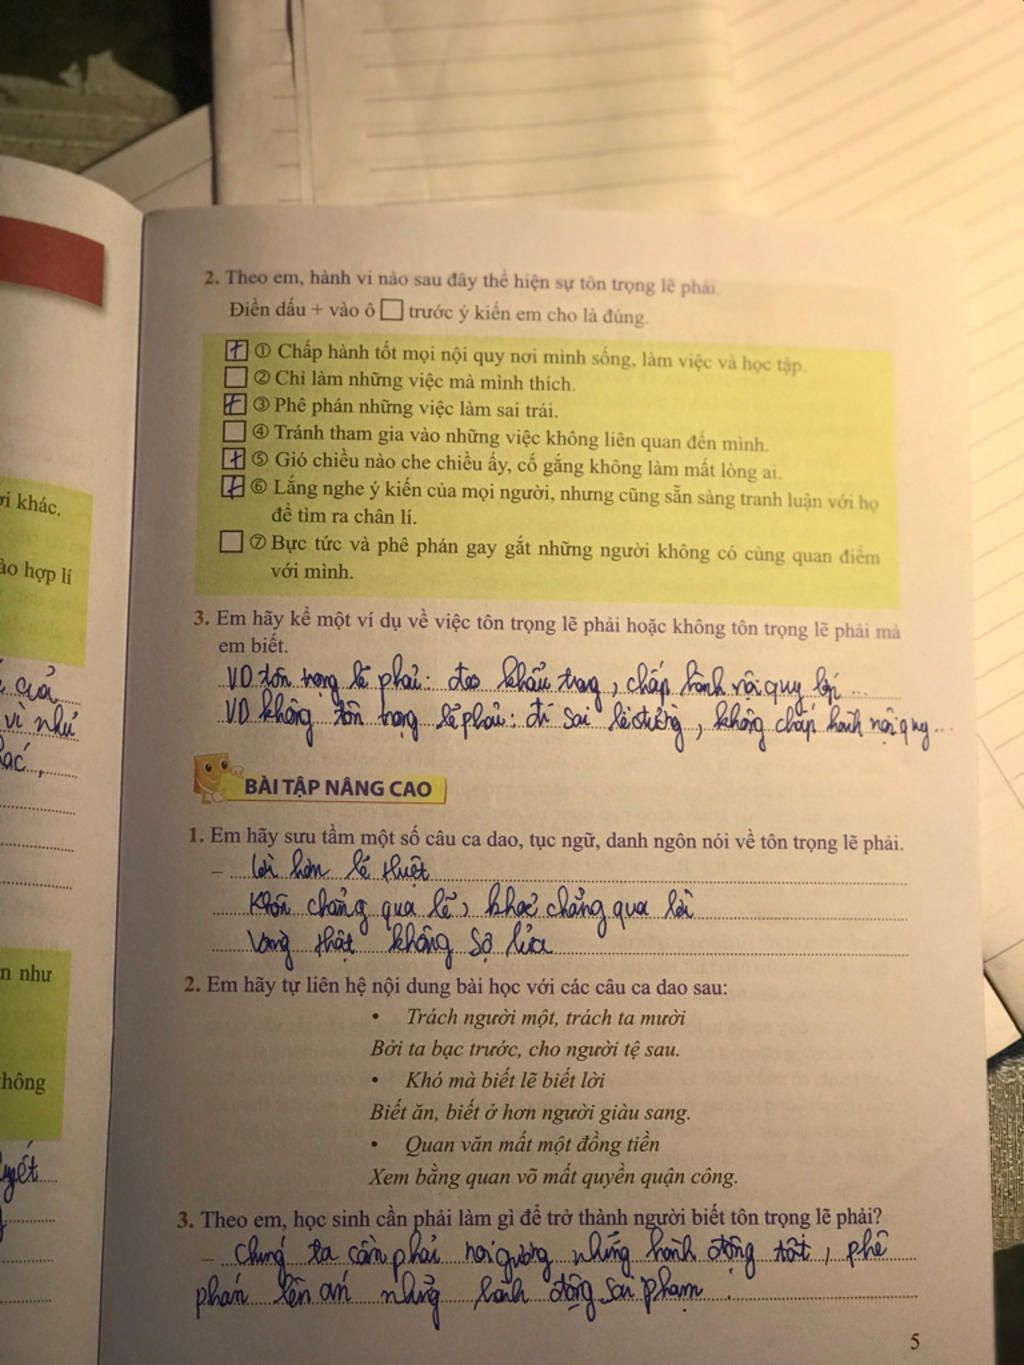 2. Theo em, hành vi nào sau đây thể hiện sự tôn trọng lẽ phải.
Điền dấu + vào ô □ trước ý kiến em cho là đúng.
+ ① Chấp hành tốt mọi nội quy nơi mình sống, làm việc và học tập.
□ ② Chỉ làm những việc mà mình thích.
+ ③ Phê phán những việc làm sai trái.
□ ④ Tránh tham gia vào những việc không liên quan đến mình.
+ ⑤ Gió chiều nào che chiều ấy, cố gắng không làm mất lòng ai.
+ ⑥ Lắng nghe ý kiến của mọi người, nhưng cũng sẵn sàng tranh luận với họ
để tìm ra chân lí.
□ ⑦ Bực tức và phê phán gay gắt những người không có cùng quan điểm
với mình.
3. Em hãy kể một ví dụ về việc tôn trọng lẽ phải hoặc không tôn trọng lẽ phải mà
em biết.
VD tôn trọng lẽ phải: đeo khẩu trang, chấp hành nội quy lớp ...
VD không tôn trọng lẽ phải: đi sai lề đường, không chấp hành nội quy ...
BÀI TẬP NÂNG CAO
1. Em hãy sưu tầm một số câu ca dao, tục ngữ, danh ngôn nói về tôn trọng lẽ phải.
– Lời hơn lẽ thiệt
Khôn chẳng qua lẽ, khoẻ chẳng qua lời
Vàng thật không sợ lửa
2. Em hãy tự liên hệ nội dung bài học với các câu ca dao sau:
• Trách người một, trách ta mười
Bởi ta bạc trước, cho người tệ sau.
• Khó mà biết lẽ biết lời
Biết ăn, biết ở hơn người giàu sang.
• Quan văn mất một đồng tiền
Xem bằng quan võ mất quyền quận công.
3. Theo em, học sinh cần phải làm gì để trở thành người biết tôn trọng lẽ phải?
– Chúng ta cần phải noi gương những hành động tốt, phê
phán lên án những hành động sai phạm.
5
ời khác.
ào hợp lí
vì như
n như
hông